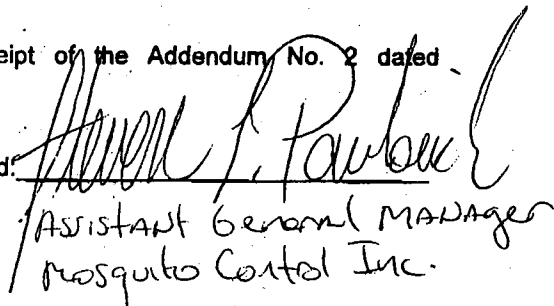 eipt of the Addendum No. 2 dated
d:
Assistant General Manager
Mosquito Control Inc.